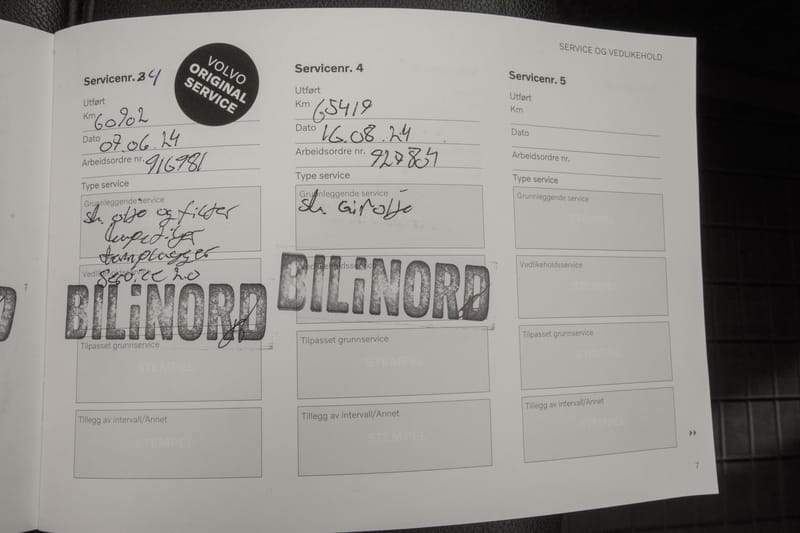 SERVICE OG VEDLIKEHOLD
Servicenr. 34
VOLVO
ORIGINAL
SERVICE
Utført
Km 60902
Dato 07.06.24
Arbeidsordre nr. 916981
Type service
Grunnleggende service
sk. olje og filter
tennplugger
service 2.0
BILiNORD
Tilpasset grunnservice
STEMPEL
Tillegg av intervall/Annet
STEMPEL
Servicenr. 4
Utført
Km 65419
Dato 16.08.24
Arbeidsordre nr. 927804
Type service
Grunnleggende service
sk. Girolje
BILiNORD
Tilpasset grunnservice
STEMPEL
Tillegg av intervall/Annet
STEMPEL
Servicenr. 5
Utført
Km
Dato
Arbeidsordre nr.
Type service
Grunnleggende service
Vedlikeholdsservice
Tilpasset grunnservice
Tillegg av intervall/Annet
7